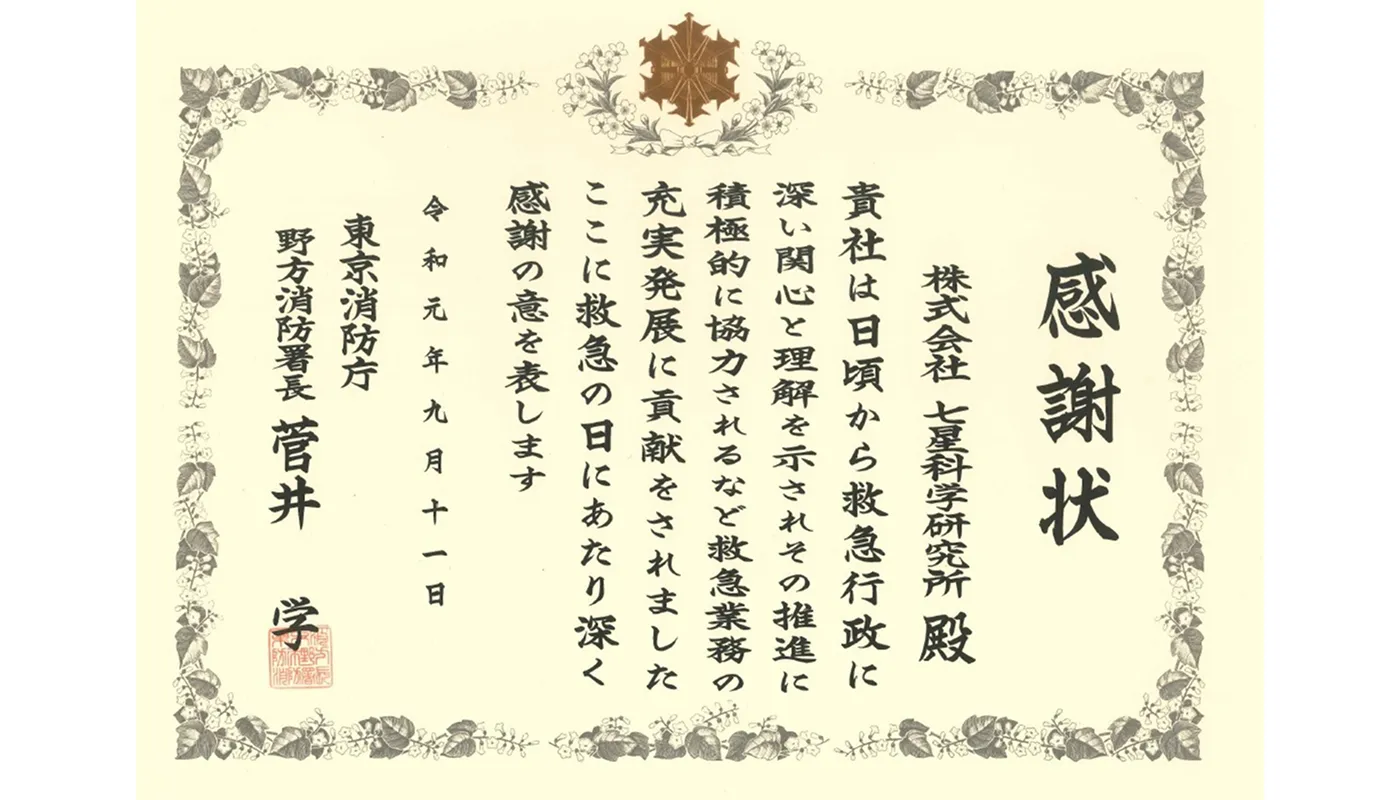 感謝状
株式会社 七星科学研究所 殿
貴社は日頃から救急行政に
深い関心と理解を示されその推進に
積極的に協力されるなど救急業務の
充実発展に貢献をされました
ここに救急の日にあたり深く
感謝の意を表します
令和元年九月十一日
東京消防庁
野方消防署長 菅井 学